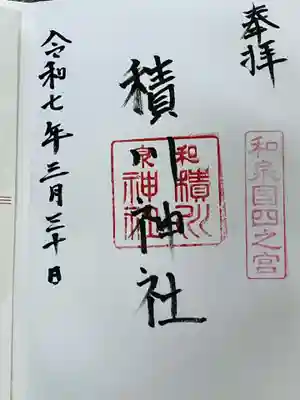 奉拝
和泉国四之宮
積川神社
和泉
積川
神社
令和七年三月三十日